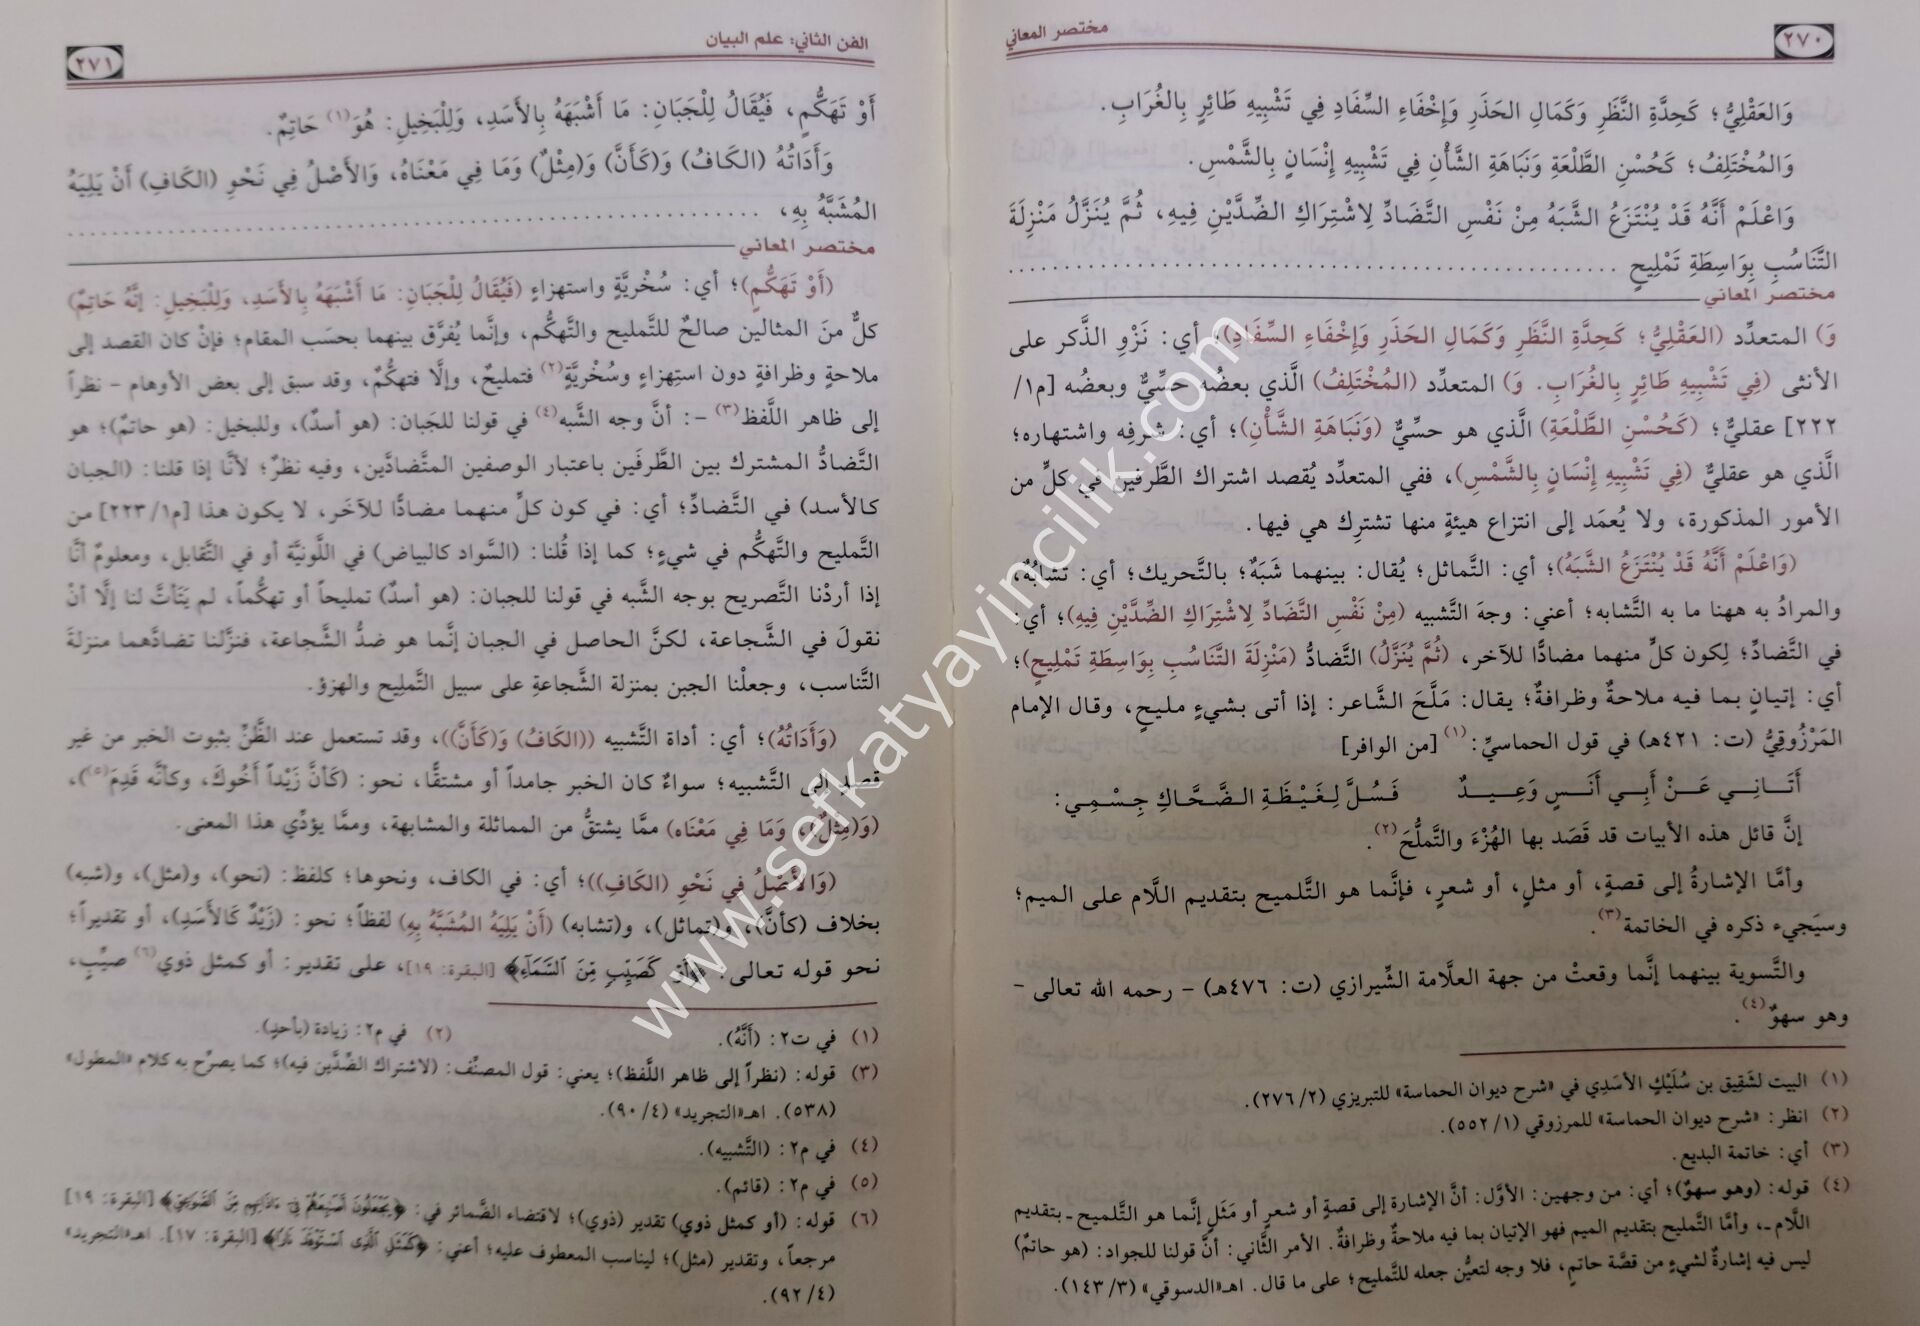 ٢٧٠
مختصر المعاني
وَالعَقْلِيُّ؛ كَحِدَّةِ النَّظَرِ وَكَمَالِ الحَذَرِ وَإِخْفَاءِ السِّفَادِ فِي تَشْبِيهِ طَائِرٍ بِالغُرَابِ.
وَالمُخْتَلِفُ؛ كَحُسْنِ الطَّلْعَةِ وَنَبَاهَةِ الشَّأْنِ فِي تَشْبِيهِ إِنْسَانٍ بِالشَّمْسِ.
وَاعْلَمْ أَنَّهُ قَدْ يُنْتَزَعُ الشَّبَهُ مِنْ نَفْسِ التَّضَادِّ لِاشْتِرَاكِ الضِّدَّيْنِ فِيهِ، ثُمَّ يُنَزَّلُ مَنْزِلَةَ
التَّنَاسُبِ بِوَاسِطَةِ تَمْلِيحٍ ..........................................................
مختصر المعاني
(وَ) المتعدِّد (العَقْلِيُّ؛ كَحِدَّةِ النَّظَرِ وَكَمَالِ الحَذَرِ وَإِخْفَاءِ السِّفَادِ)؛ أي: نَزْوِ الذَّكر على
الأنثى (فِي تَشْبِيهِ طَائِرٍ بِالغُرَابِ. وَ) المتعدِّد (المُخْتَلِفُ) الَّذي بعضُه حسِّيٌّ وبعضُه [م١/
٢٢٢] عقليٌّ؛ (كَحُسْنِ الطَّلْعَةِ) الَّذي هو حسِّيٌّ (وَنَبَاهَةِ الشَّأْنِ)؛ أي: شرفِه واشتهاره؛
الَّذي هو عقليٌّ (فِي تَشْبِيهِ إِنْسَانٍ بِالشَّمْسِ)، ففي المتعدِّد يُقصد اشتراك الطَّرفين في كلٍّ من
الأمور المذكورة، ولا يُعمَد إلى انتزاع هيئةٍ منها تشترِك هي فيها.
(وَاعْلَمْ أَنَّهُ قَدْ يُنْتَزَعُ الشَّبَهُ)؛ أي: التَّماثل؛ يُقال: بينهما شَبَهٌ؛ بالتَّحريك؛ أي: تشابُهٌ،
والمرادُ به ههنا ما به التَّشابه؛ أعني: وجهَ التَّشبيه (مِنْ نَفْسِ التَّضَادِّ لِاشْتِرَاكِ الضِّدَّيْنِ فِيهِ)؛ أي:
في التَّضادِّ؛ لِكون كلٍّ منهما مضادًّا للآخر، (ثُمَّ يُنَزَّلُ) التَّضادُّ (مَنْزِلَةَ التَّنَاسُبِ بِوَاسِطَةِ تَمْلِيحٍ)؛
أي: إتيانٍ بما فيه ملاحةٌ وظرافةٌ؛ يقال: مَلَّحَ الشَّاعر: إذا أتى بشيءٍ مليحٍ، وقال الإمام
المَرْزُوقيُّ (ت: ٤٢١هـ) في قول الحماسيِّ:(١) [من الوافر]
أَتَانِي عَنْ أَبِي أَنَسٍ وَعِيدٌ فَسُلَّ لِغَيْظَةِ الضَّحَّاكِ جِسْمِي:
إنَّ قائل هذه الأبيات قد قَصَد بها الهُزْءَ والتَّملُّحَ(٢).
وأمَّا الإشارةُ إلى قصةٍ، أو مثلٍ، أو شعرٍ، فإنَّما هو التَّلميح بتقديم اللَّام على الميم؛
وسيَجيء ذكره في الخاتمة(٣).
والتَّسوية بينهما إنَّما وقعتْ من جهة العلَّامة الشِّيرازي (ت: ٤٧٦هـ) - رحمه الله تعالى -
وهو سهوٌ(٤).
(١) البيت لشَقِيق بن سُلَيْكٍ الأسَدِي في «شرح ديوان الحماسة» للتبريزي (٢/ ٢٧٦).
(٢) انظر: «شرح ديوان الحماسة» للمرزوقي (١/ ٥٥٢).
(٣) أي: خاتمة البديع.
(٤) قوله: (وهو سهوٌ)؛ أي: من وجهين: الأوَّل: أنَّ الإشارة إلى قصةٍ أو شعرٍ أو مَثَلٍ إنَّما هو التَّلميح ـ بتقديم
اللَّام ـ، وأمَّا التَّمليح بتقديم الميم فهو الإتيان بما فيه ملاحةٌ وظرافةٌ. الأمر الثَّاني: أنَّ قولنا للجواد: (هو حاتمٌ)
ليس فيه إشارةٌ لشيءٍ من قصَّة حاتمٍ، فلا وجه لتعيُّن جعله للتَّمليح؛ على ما قال. اهـ«الدسوقي» (٣/ ١٤٣).
الفن الثاني: علم البيان
٢٧١
أَوْ تَهَكُّمٍ، فَيُقَالُ لِلْجَبَانِ: مَا أَشْبَهَهُ بِالأَسَدِ، وَلِلْبَخِيلِ: هُوَ(١) حَاتِمٌ.
وَأَدَاتُهُ (الكَافُ) وَ(كَأَنَّ) وَ(مِثْلُ) وَمَا فِي مَعْنَاهُ، وَالأَصْلُ فِي نَحْوِ (الكَافِ) أَنْ يَلِيَهُ
المُشَبَّهُ بِهِ، ..........................................................
مختصر المعاني
(أَوْ تَهَكُّمٍ)؛ أي: سُخْرِيَّةٍ واستهزاءٍ (فَيُقَالُ لِلْجَبَانِ: مَا أَشْبَهَهُ بِالأَسَدِ، وَلِلْبَخِيلِ: إِنَّهُ حَاتِمٌ)
كلٌّ منَ المثالين صالحٌ للتَّمليح والتَّهكُّم، وإنَّما يُفرَّق بينهما بحسَب المقام؛ فإنْ كان القصد إلى
ملاحةٍ وظرافةٍ دون استِهزاءٍ وسُخْرِيَّةٍ(٢) فتمليحٌ، وإلَّا فتهكُّمٌ، وقد سبق إلى بعض الأوهام - نظراً
إلى ظاهر اللَّفظ(٣) -: أنَّ وجه الشَّبه(٤) في قولنا للجَبان: (هو أسدٌ)، وللبخيل: (هو حاتمٌ)؛ هو
التَّضادُّ المشترك بين الطَّرفَين باعتبار الوصفين المتَّضادَّين، وفيه نظرٌ؛ لأنَّا إذا قلنا: (الجبان
كالأسد) في التَّضادِّ؛ أي: في كون كلٍّ منهما مضادًّا للآخَر، لا يكون هذا [م١/ ٢٢٣] من
التَّمليح والتَّهكُّم في شيءٍ؛ كما إذا قُلنا: (السَّواد كالبياض) في اللَّونيَّة أو في التَّقابل، ومعلومٌ أنَّا
إذا أردْنا التَّصريح بوجه الشَّبه في قولنا للجبان: (هو أسدٌ) تمليحاً أو تهكُّماً، لم يَتَأتَّ لنا إلَّا أنْ
نقولَ في الشَّجاعة، لكنَّ الحاصل في الجبان إنَّما هو ضدُّ الشَّجاعة، فنزَّلنا تضادَّهما منزلةَ
التَّناسب، وجعلْنا الجبن بمنزلة الشَّجاعةِ على سبيل التَّمليح والهزؤ.
(وَأَدَاتُهُ)؛ أي: أداة التَّشبيه ((الكَافُ) وَ(كَأَنَّ))، وقد تستعمل عند الظَّنِّ بثبوت الخبر من غير
قصدٍ إلى التَّشبيه؛ سواءٌ كان الخبر جامداً أو مشتقًّا، نحو: (كَأنَّ زَيْداً أَخُوكَ، وكأنَّه قَدِمَ(٥))،
(وَ(مِثْلُ)، وَمَا فِي مَعْنَاه) ممَّا يشتقُّ من المماثلة والمشابهة، وممَّا يؤدِّي هذا المعنى.
(وَالأَصْلُ فِي نَحْوِ (الكَافِ))؛ أي: في الكاف، ونحوها؛ كلفظ: (نحو)، و(مثل)، و(شبه)
بخلاف (كأنَّ)، و(تماثل)، و(تشابه) (أَنْ يَلِيَهُ المُشَبَّهُ بِهِ) لفظاً؛ نحو: (زَيْدٌ كَالأَسَدِ)، أو تقديراً؛
نحو قوله تعالى: ﴿أَوْ كَصَيِّبٍ مِّنَ السَّمَاءِ﴾ [البقرة: ١٩]، على تقدير: أو كمثل ذوي(٦) صيِّبٍ،
(١) في ت٢: (أَنَّهُ). (٢) في م٢: زيادة (بأحدٍ).
(٣) قوله: (نظراً إلى ظاهر اللَّفظ)؛ يعني: قول المصنِّف: (لاشتراك الضِّدَّين فيه)؛ كما يصرِّح به كلام «المطول»
(٥٣٨). اهـ«التجريد» (٤/ ٩٠).
(٤) في م٢: (التَّشبيه).
(٥) في م٢: (قائم).
(٦) قوله: (أو كمثل ذوي) تقدير (ذوي)؛ لاقتضاء الضَّمائر في: ﴿يَجْعَلُونَ أَصَابِعَهُمْ فِي آذَانِهِم مِّنَ الصَّوَاعِقِ﴾ [البقرة: ١٩]
مرجعاً، وتقدير (مثل)؛ ليناسب المعطوف عليه؛ أعني: ﴿كَمَثَلِ الَّذِي اسْتَوْقَدَ نَارًا﴾ [البقرة: ١٧]. اهـ«التجريد»
(٤/ ٩٢).
www.sefkatyayincilik.com